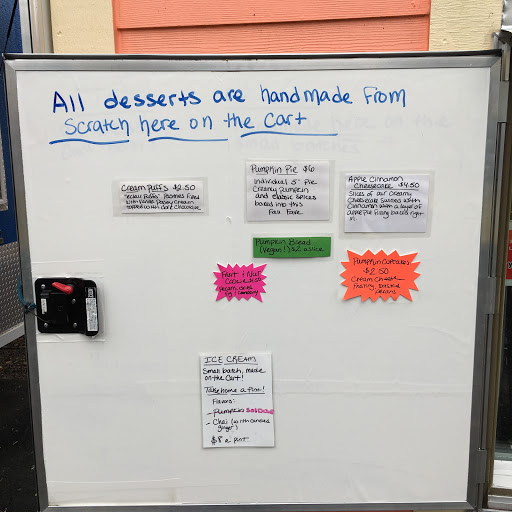 All desserts are handmade from
Scratch here on the Cart
Cream Puffs $2.50
filled
with Vanilla Pastry Cream
topped with dark Chocolate
Pumpkin Pie $6
Individual 5" Pie
Creamy Pumpkin
and classic spices
baked into this
Fall Fave
Apple Cinnamon
Cheesecake $4.50
Slices of our creamy
Cheesecake swirled with
Cinnamon with a layer of
apple pie filling baked right
in.
Pumpkin Bread
(Vegan!) $2 a slice
Fruit + Nut
Pumpkin Cupcakes
$2.50
Cream Cheese
Frosting,
Pecans
ICE CREAM
Small batch, made
on the Cart!
Take home a Pint!
Flavors:
- Pumpkin Sold Out
- Chai (with candied
ginger)
$8 a pint